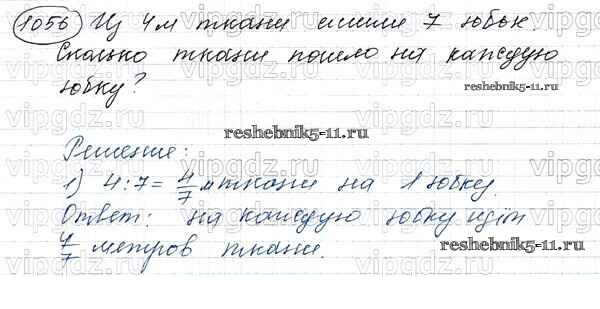 1056 Из 4 м ткани сшили 7 юбок.
Сколько ткани пошло на каждую
юбку?
reshebnik5-11.ru
reshebnik5-11.ru
Решение:
1) 4:7=4/7 м ткани на 1 юбку.
Ответ: на каждую юбку идёт
4/7 метров ткани.
reshebnik5-11.ru
vipgdz.ru